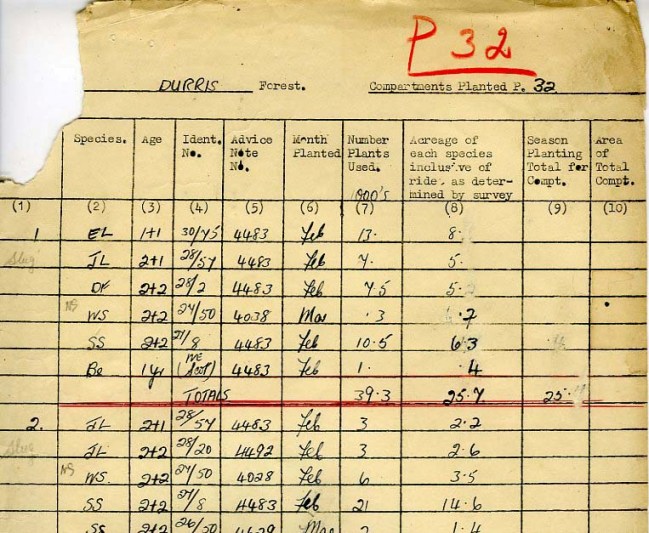 P 32
DURRIS Forest. Compartments Planted P. 32
Species. Age Ident. No. Advice Note No. Month Planted Number Plants Used. 1000's Acreage of each species inclusive of ride, as determined by survey Season Planting Total for Compt. Area of Total Compt.
(1) (2) (3) (4) (5) (6) (7) (8) (9) (10)
1 EL 1+1 30/75 4483 Feb 13. 8.
JL 2+1 28/57 4483 Feb 7. 5.
DF 2+2 28/2 4483 Feb 7.5 5.
NS WS 2+2 27/50 4038 Mar .3 .7
SS 2+2 27/8 4483 Feb 10.5 6.3
Be 1yr 4483 Feb 1. .4
TOTALS 39.3 25.7 25.
2. JL 2+1 28/57 4483 Feb 3 2.2
JL 2+2 28/20 4492 Feb 3 2.6
NS WS. 2+2 27/50 4028 Feb 6 3.5
SS 2+2 27/8 4483 Feb 21 14.6
SS 2+2 26/50 Mar 2 1.4